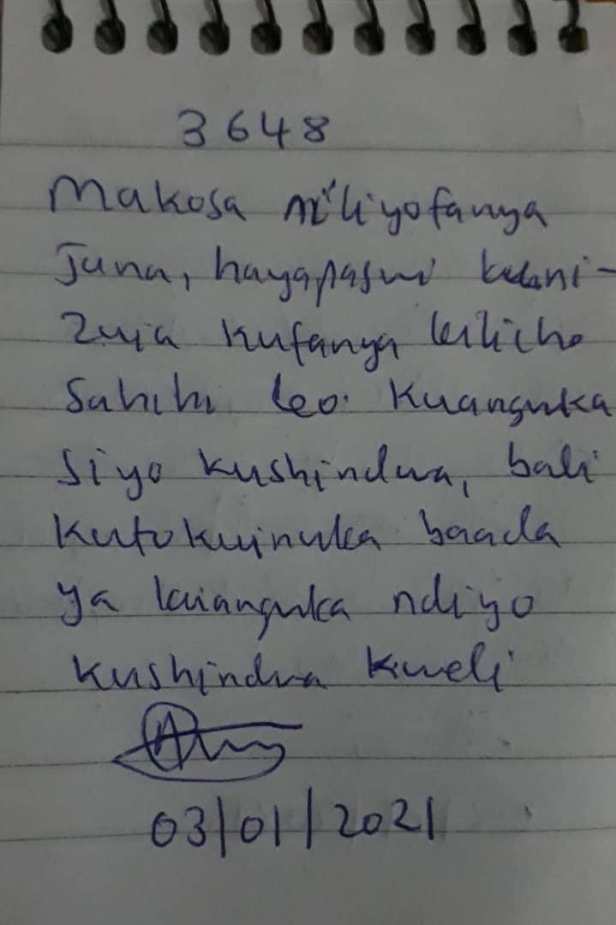 3648
Makosa niliyofanya
Jana, hayapaswi kuni-
zuia kufanya kilicho
Sahihi leo. Kuanguka
siyo kushindwa, bali
kutokuinuka baada
ya kuianguka ndiyo
kushindwa kweli
03/01/2021